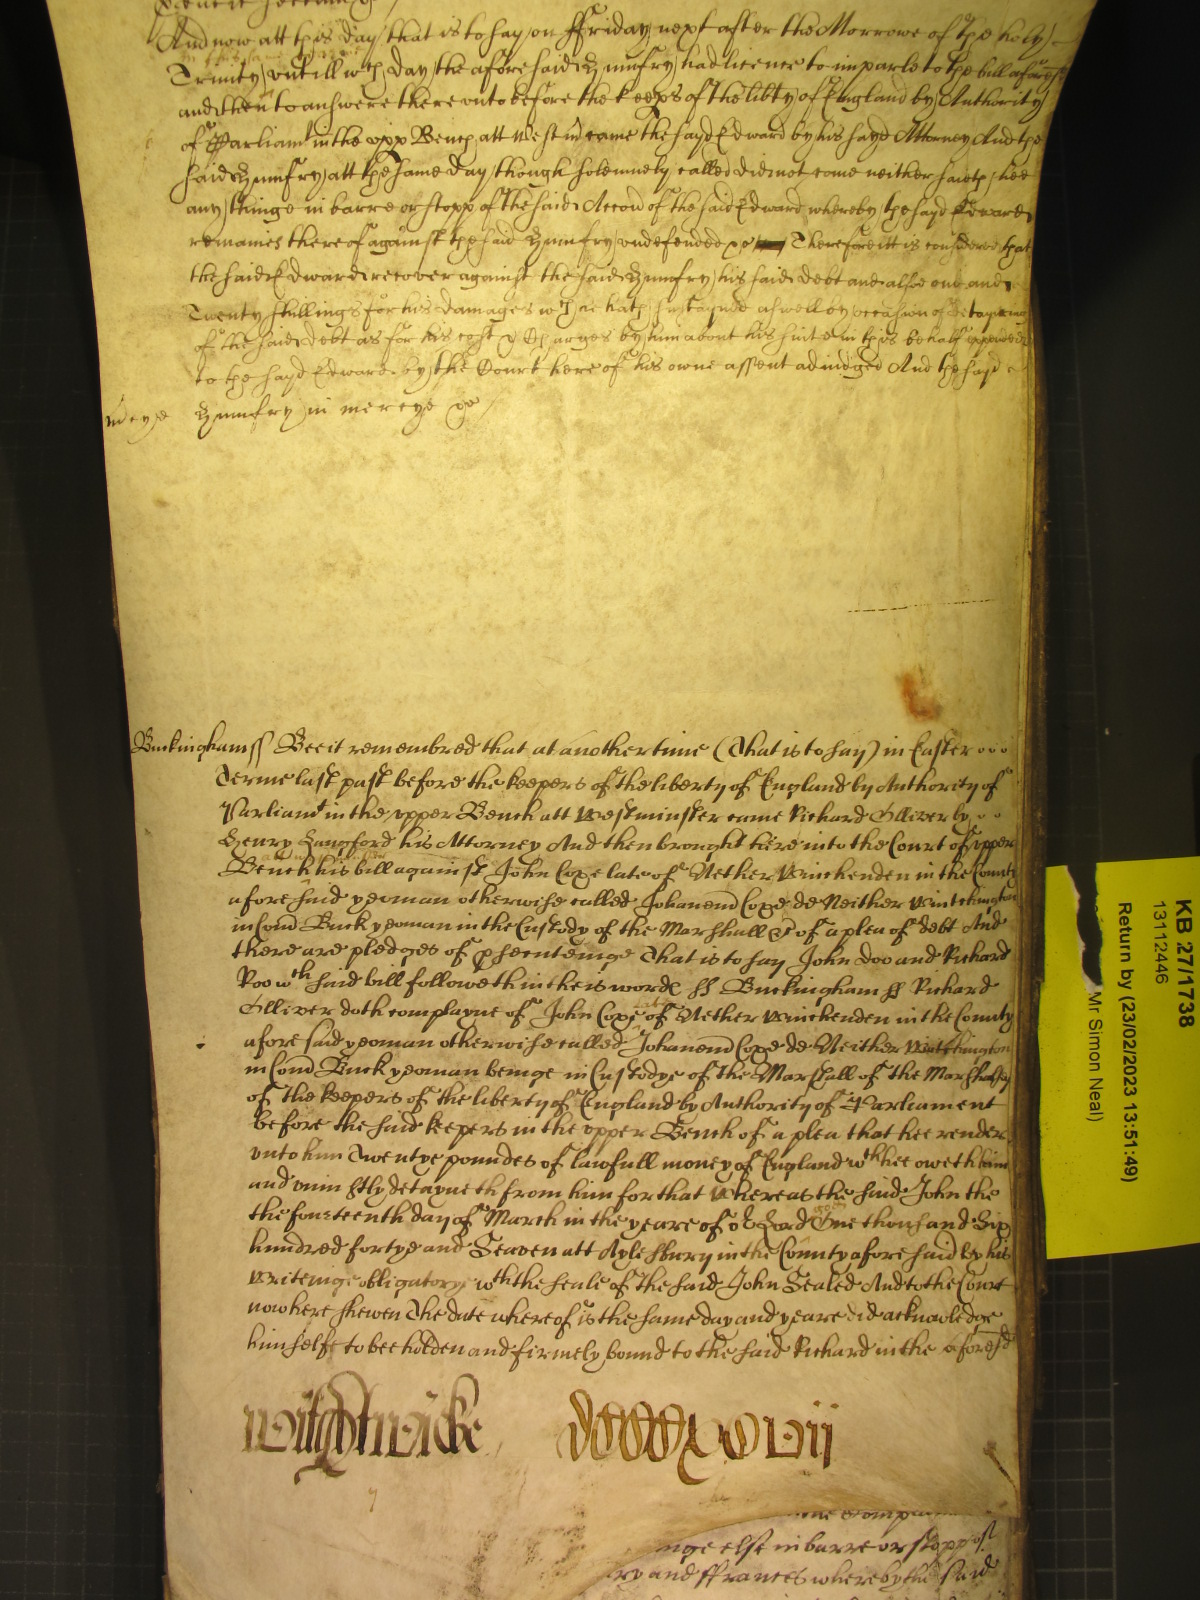 And now att this day that is to say on ffriday next after the Morrowe of the holy
Trinity untill wch day the aforesaid Humfry had licence to imparle to the bill aforesd
and then to answere there unto before the keeps of the libty of England by Authority
of Parliamt in the upp Bench att Westm came the sayd Edward by his sayd Attorney And the
said Humfry att the same day though solemnely called did not come neither saieth hee
any thinge in barre or stopp of the said Accon of the said Edward whereby the sayd Edward
remaines thereof against the said Humfry undefended &c Therefore itt is considered that
the said Edward recover against the said Humfry his said debt and alsoe one and
Twenty shillings for his damages wch he hath sustayned aswell by occasion of detayning
of the said debt as for his cost & Charges by him about his suite in this behalf expended
to the sayd Edward by the Court here of his owne assent adiudged And the sayd
mcye Humfry in mercye &c
Buckingham ss Bee it remembred that at another time (That is to say) in Easter
Terme last past before the keepers of the liberty of England by Authority of
Parliamt in the upper Bench att Westminster came Richard Olliver by
Henry Langford his Attorney And then brought here into the Court of upper
Bench his bill against John Cope late of Nether Winchenden in the County
aforesaid yeoman otherwise called Johanem Cope de Neither Wintchington
in Com Buck yeoman in the Custody of the Marshall &c of a plea of debt And
there are pledges of psecuteinge That is to say John Doo and Richard
Roo wch said bill followeth in theis words ss Buckingham ss Richard
Olliver doth complayne of John Cope late of Nether Winchenden in the County
aforesaid yeoman otherwise called Johanem Cope de Neither Wintchington
in Com Buck yeoman beinge in Custodye of the Marshall of the Marshalsy
of the keepers of the liberty of England by Authority of Parliament
before the said keepers in the upper Bench of a plea that hee render
unto him Twentye poundes of lawfull money of England wch hee oweth him
and uniustly detayneth from him for that Whereas the said John the
the fourteenth day of March in the yeare of or Lord One thousand Six
hundred fortye and Seaven att Aylesbury in the County aforesaid by his
writeinge obligatory wth the seale of the said John Sealed And to the Court
now here shewen The date whereof is the same day and yeare did acknowledge
himselfe to bee holden and firmely bound to the said Richard in the aforesd
Wightwicke
nge else in barre or stopp of
ry and ffrances whereby the said
KB 27/1738
13112446
Return by (23/02/2023 13:51:49)
Mr Simon Neal)